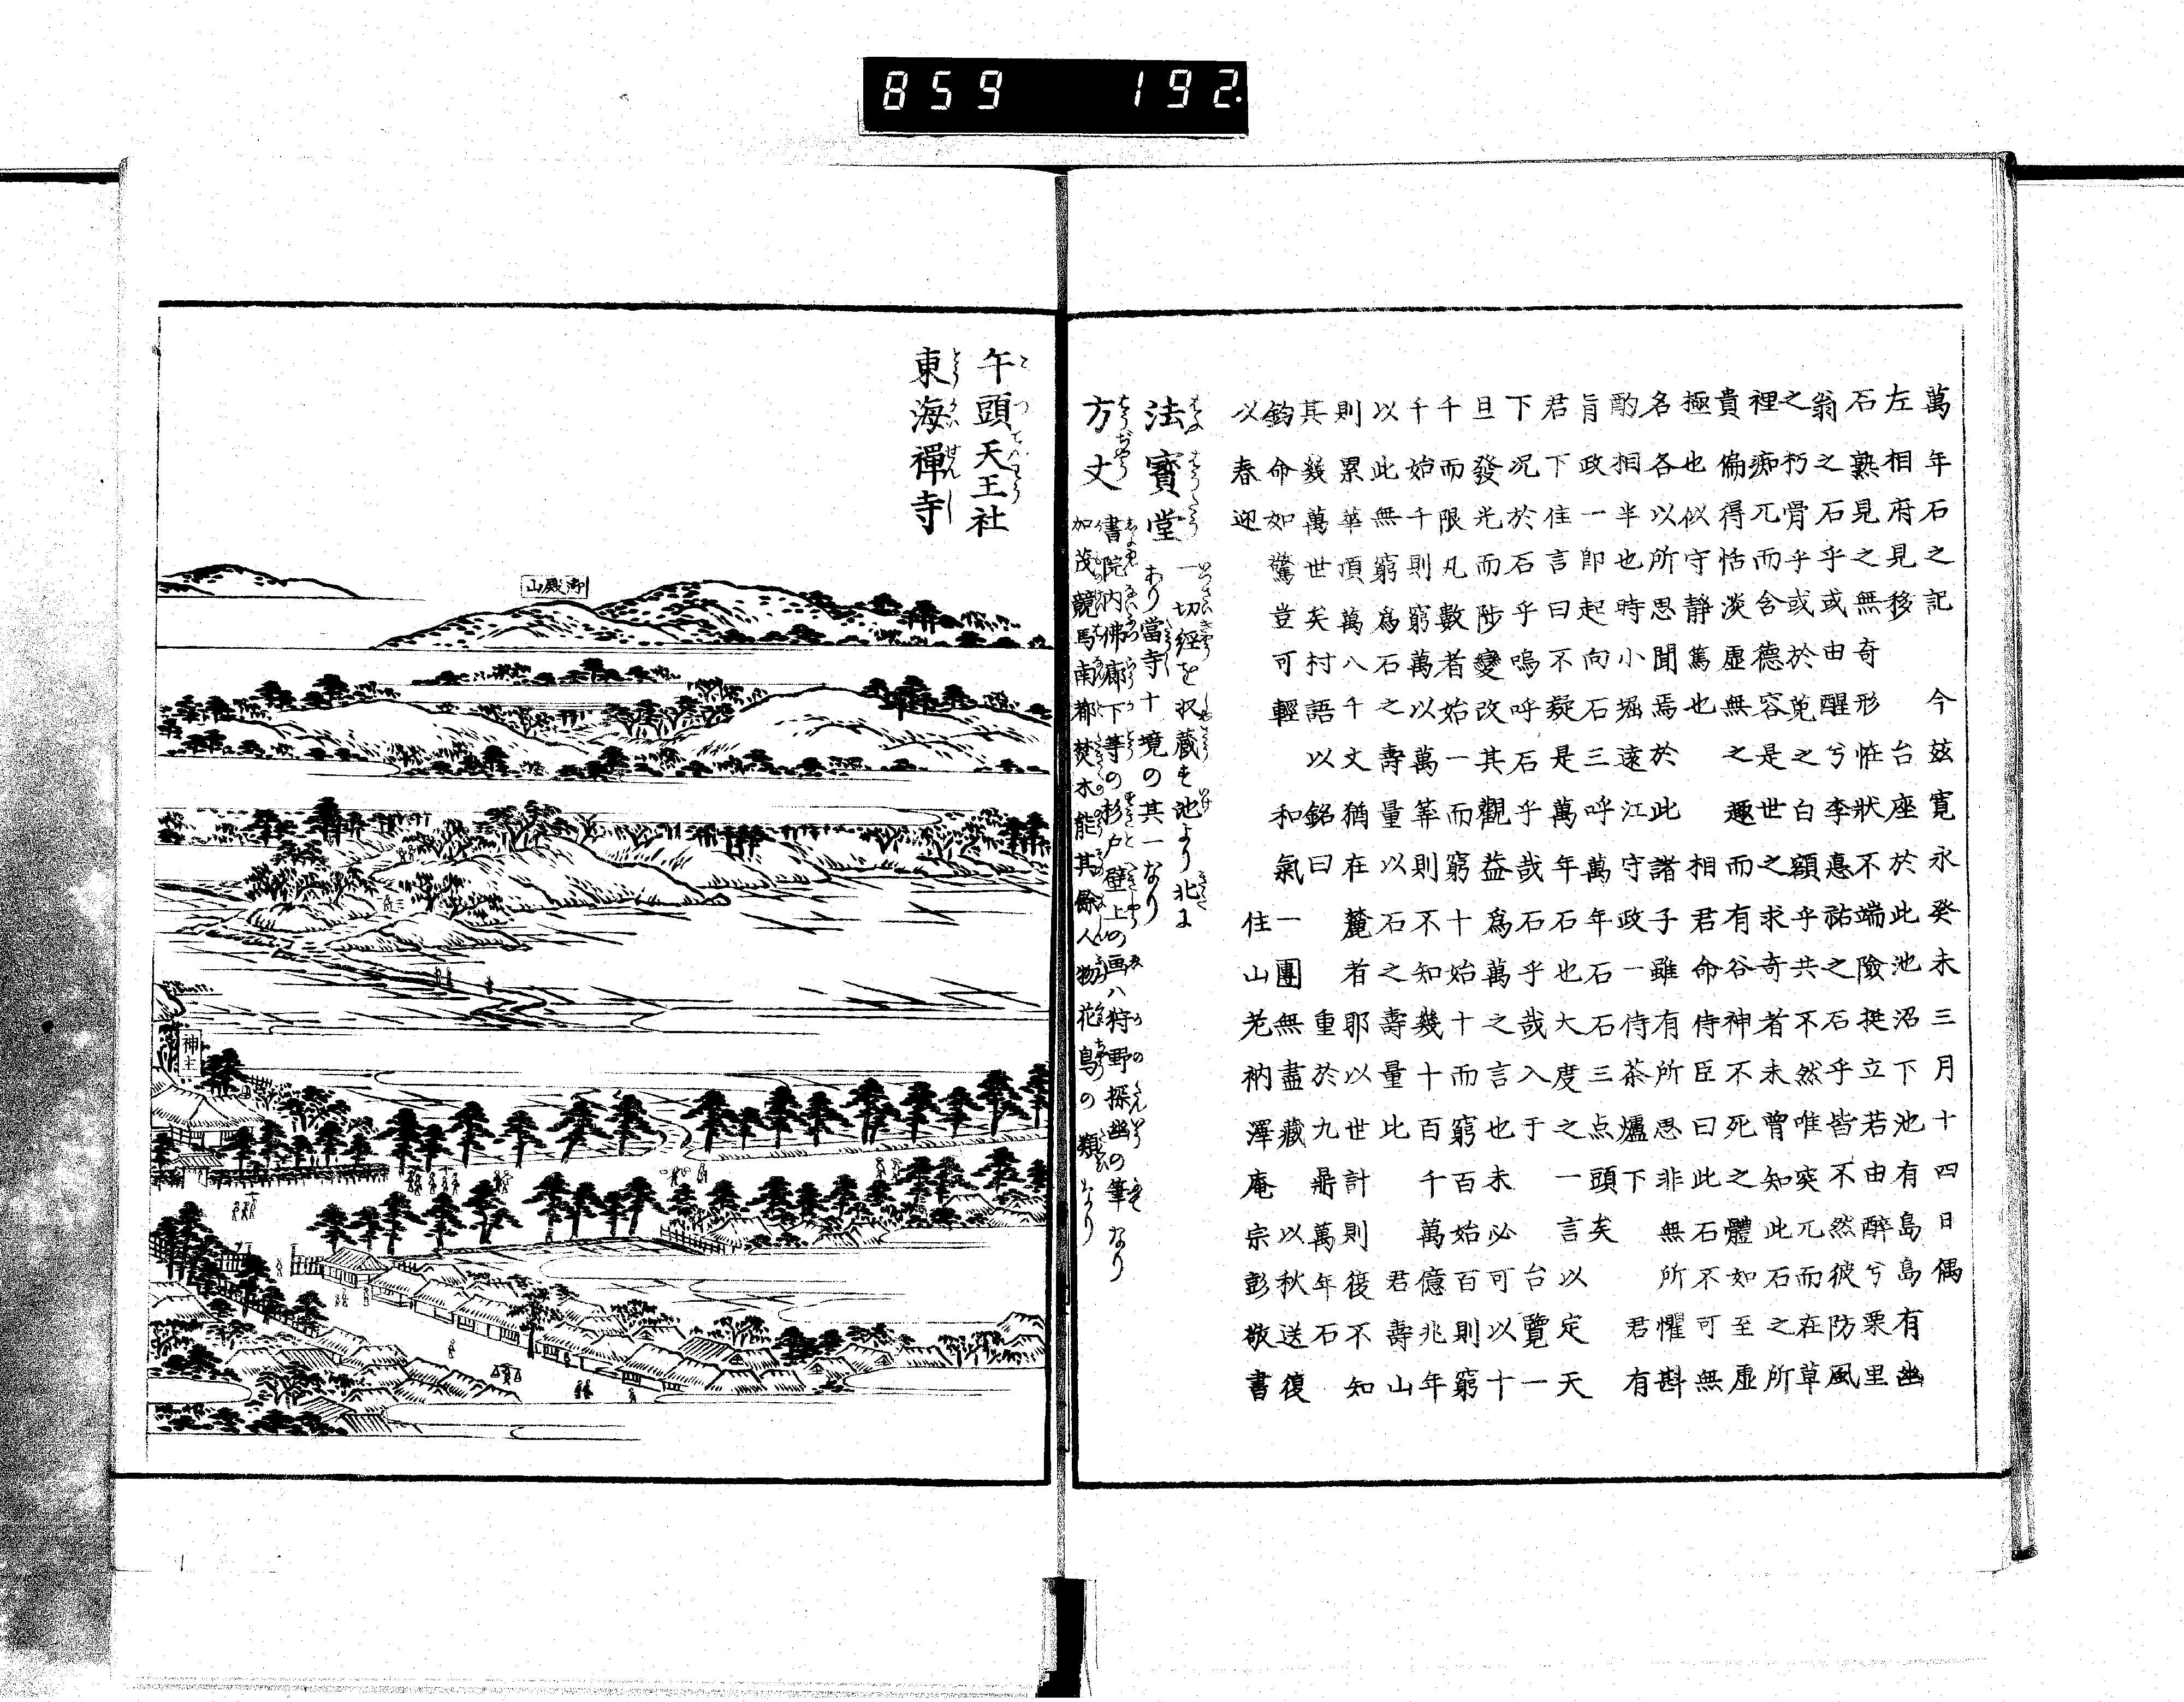 萬年石之記 今茲寛永癸未三月十四日偶
左相府見移 台座於此池沼下池有島島有幽
石熟見之無奇形恠狀不端險挺立若由醉兮栗里
翁之石乎或由醒兮李悳祐之石乎皆不然彼防風
之朽骨乎或於兎之白額乎共不然唯突兀而在草
裡痴兀而含德容是世之求奇者未曾知此石之所
貴偏得恬淡虛無之趣而有谷神不死之體如至虛
極也似守静篤也 相君命侍臣曰此石不可無
名各以所思聞焉於此諸子雖有所思非無所懼斟
酌相半也時小堀遠江守政一侍茶爐下 君有
旨政一即起向石三呼萬年石石三点頭矣
君下住言曰不疑是萬年石也大度之一言以定天
下况於石乎嗚呼石乎哉石乎哉入于 台覽一
旦發光而陟變改其觀益為萬之言也未必可以十
千而限凡數者始一而窮十始十而窮百始百則窮
千始千則窮萬以萬筭則不知幾十百千萬億兆年
以此無窮為石之壽量以石之壽量比 君壽山
則累華項萬八千丈猶在麓者耶以世計則後不知
其幾萬世矣村語以銘曰 重於九鼎萬年石
鈞命如驚豈可輕 和氣一團無盡藏以秋送復
以春迎 住山老衲澤庵宗彭敬書
法寳堂 一切経を収蔵す池より北に
あり當寺十境の其一なり
方丈 書院内佛廊下等の杉戸壁上の画ハ狩野探幽の筆なり
加茂競馬南都焚木能其餘人物花鳥の類なり
午頭天王社
東海禪寺
御殿山
神主
859 192.